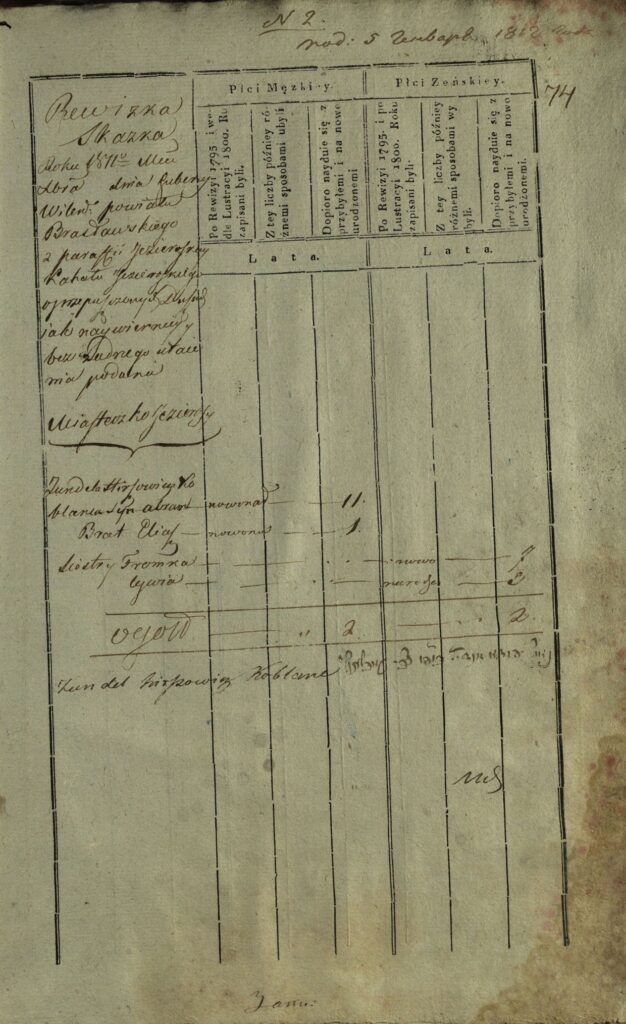 N 2.
под: 5 Генваря 1812
74
Rewizka
Skazka
Roku 1811º
dnia Guberny
Wileńs: powiatu
Brasławskiego
z parafii Jezieroskiey
Kahału Jezieroskiego
jak nay wierniey
bez Żadnego utaie
nia podana
Płci Męzkiey.
Płci Żeńskiey.
Po Rewizyi 1795 i we dle Lustracyi 1800. Ro. zapisani byli.
Z tey liczby późniey ró- żnemi sposobami ubyli
Dopioro nayduie się z przybyłemi i na nowo urodzonemi
Po Rewizyi 1795. i po Lustracyi 1800. Roku zapisani byli.
Z tey liczby późniey różnemi sposobami wy byli.
Dopioro nayduie się z przybyłemi i na nowo urodzonemi.
Lata.
Lata.
Miasteczko Jeziorosy
Zundel Hirszowicz Ko
blaniec Syn Abram nowonar 11.
Brat Eliasz nowonar 1.
Siostry Fromka nowo 7
Cywia narodz 3
ogołd " 2 " 2.
Zundel hirszowicz Koblanc